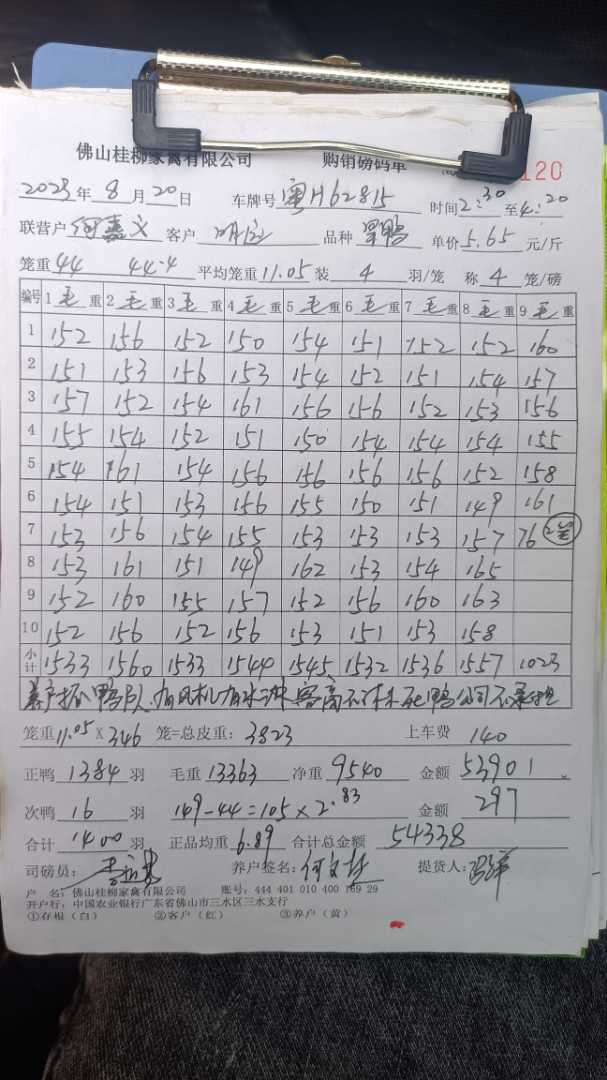 佛山桂柳家禽有限公司 购销磅码单 120
2023年8月20日 车牌号 粤H62815 时间2:30至4:20
联营户 何嘉文 客户 品种 鸭 单价5.65元/斤
笼重44 44.4 平均笼重11.05装4羽/笼 称4笼/磅
编号 1毛重 2毛重 3毛重 4毛重 5毛重 6毛重 7毛重 8毛重 9毛重
1 152 156 152 150 154 151 152 152 160
2 151 153 156 153 154 152 151 154 157
3 157 152 154 161 156 156 152 153 156
4 155 154 152 151 150 154 154 154 155
5 154 161 154 156 156 156 156 152 158
6 154 151 153 156 155 150 151 149 161
7 153 156 154 155 153 153 153 157 76 2笼
8 153 161 151 149 162 153 154 165
9 152 160 155 157 152 156 160 163
10 152 156 152 156 153 151 153 158
小计 1533 1560 1533 1544 1545 1532 1536 1557 1023
养户抓鸭 有风机有水冲 死鸭公司不承担
笼重11.05×346笼=总皮重:3823 上车费 140
正鸭1384羽 毛重13363 净重9540 金额53901
次鸭16羽 149-44=105×2.83 金额297
合计1400羽 正品均重6.89 合计总金额54338
司磅员: 养户签名: 提货人:
户 名:佛山桂柳家禽有限公司 账号:444 401 010 400 169 29
开户行:中国农业银行广东省佛山市三水区三水支行
①存根(白) ②客户(红) ③养户(黄)